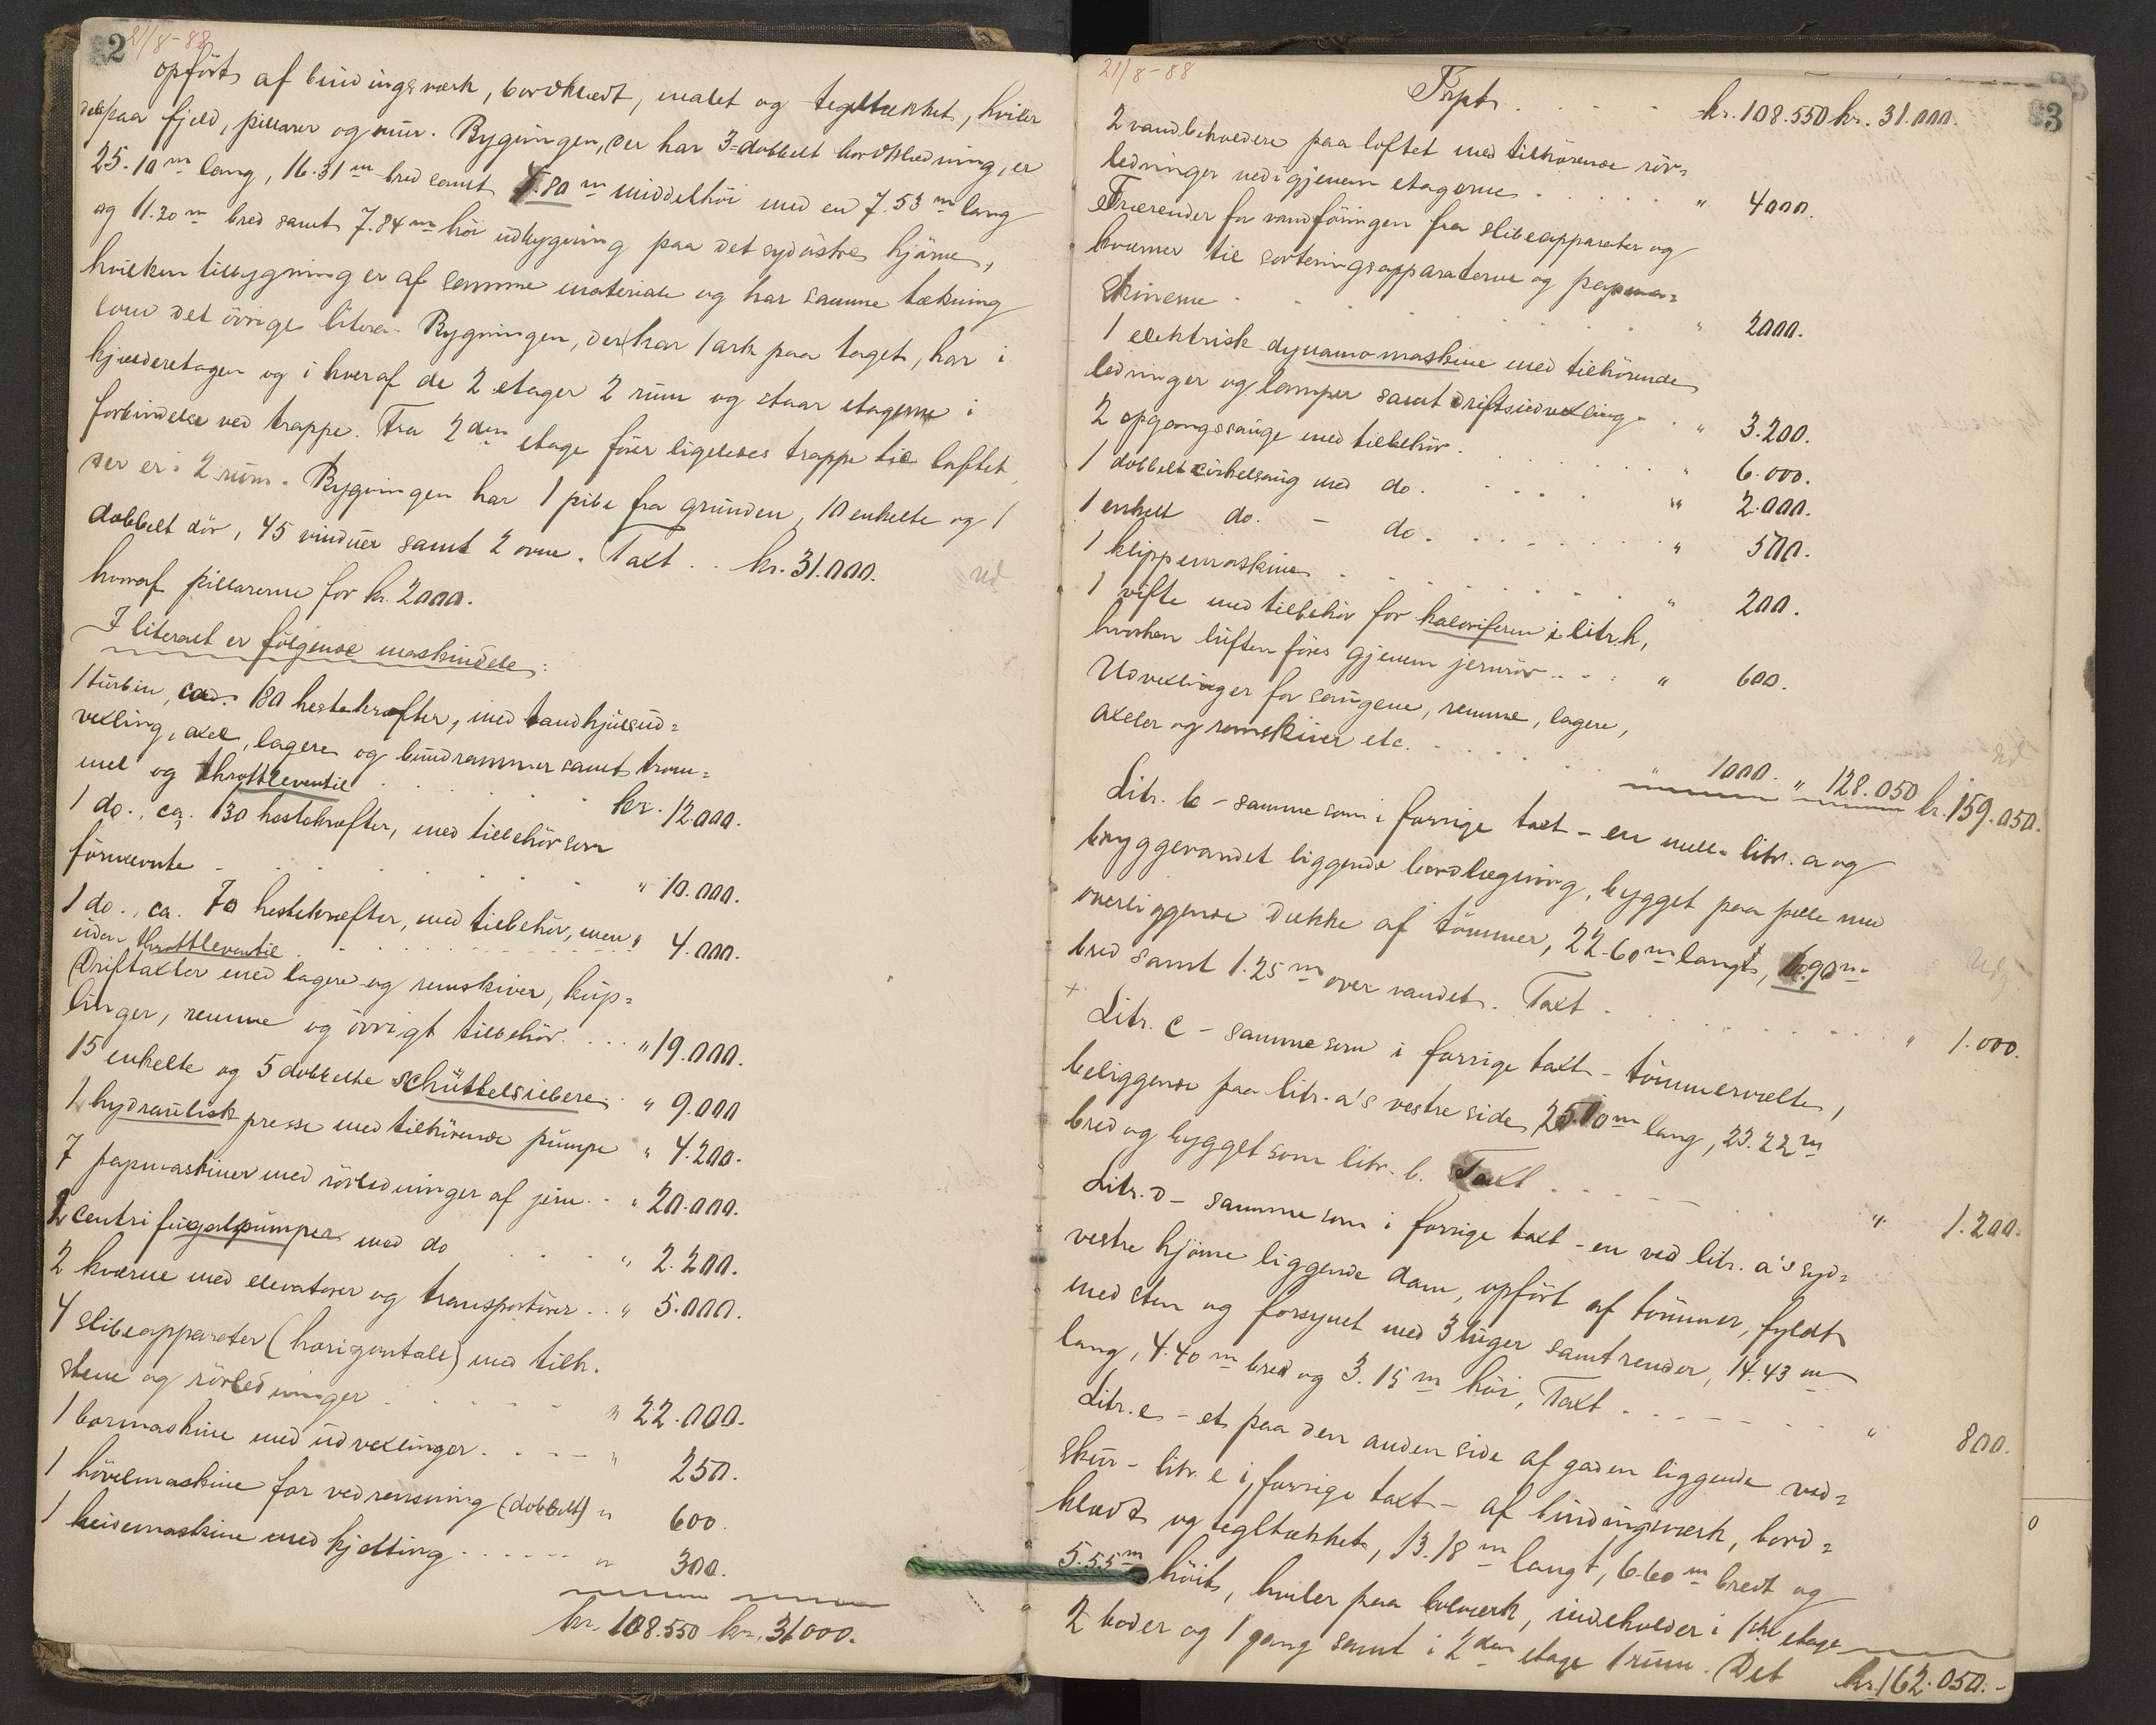 2
21/8-88
opført af bindingsverk, bordklædt, malet og tegltækket, hviler
dels paa fjeld, pillarer og mur. Bygningen, der har 3-dobbelt bordklædning, er
25.10 m lang, 16.31 m bred samt 7.80 m middelhøi med en 7.53 m lang
og 11.20 m bred samt 7.84 m høi udbygning paa det sydøstre hjørne,
hvilken tilbygning er af samme materiale og har samme tækning
som det øvrige litera. Bygningen, der har 1 ark paa taget, har i
kjælderetagen og i hver af de 2 etager 2 rum og staar etagerne i
forbindelse ved trappe. Fra 2den etage fører ligeledes trappe til loftet,
der er i 2 rum. Bygningen har 1 pibe fra grunden, 10 enkelte og 1
dobbelt dør, 45 vinduer samt 2 ovne. Taxt .. kr. 31.000.
hvoraf pillarerne for kr. 2000.
I literaet er følgende maskindele:
1 turbin, ca. 180 hestekræfter, med tandhjulsud=
vexling, axel, lagere og bundrammer samt trom=
mel og throttleventil . . . kr. 12.000.
1 do., ca. 130 hestekræfter, med tilbehør som
førnævnte . . . " 10.000.
1 do., ca. 70 hestekræfter, med tilbehør, men " 4.000.
uden throttleventil
Driftaxler med lagere og remskiver, kup=
linger, remme og øvrigt tilbehør . . . " 19.000.
15 enkelte og 5 dobbelte schüttelsiebere . " 9.000
1 hydraulisk presse med tilhørende pumpe " 4.200.
7 papmaskiner med rørledninger af jern . . " 20.000.
2 centrifugalpumper med do . . . " 2.200.
2 kværne med elevatorer og transportører . . " 5.000.
4 slibeapparater (horizontale) med tilh.
stene og rørledninger . . . " 22.000.
1 bormaskine med udvexlinger . . . " 250.
1 høvelmaskine for vedrensning (dobbelt) " 600.
1 heisemaskine med kjetting . . . " 300.
kr. 108.550 kr. 31000.
21/8-88
3
Trpt. . . . kr. 108.550 kr. 31.000.
2 vandbeholdere paa loftet med tilhørende rør=
ledninger nedigjenem etagerne . . . " 4000.
Trærender for vandføringen fra slibeapparater og
kværner til sorteringsapparaterne og papma=
skinerne . . . " 2000.
1 elektrisk dynamomaskine med tilhørende
ledninger og lamper samt driftsudvexling . . " 3.200.
2 opgangssauge med tilbehør . . . " 6.000.
1 dobbelt cirkelsaug med do. . . . " 2.000.
1 enkelt do. – do. . . . " 500.
1 klippemaskine . . . " 200.
1 vifte med tilbehør for kaloriferen i litr. h,
hvorhen luften føres gjenem jernrør . . . " 600.
Udvexlinger for saugene, remme, lagere,
axeler og remskiver etc. . . . " 1000. " 128.050 kr. 159.050.
Litr. b – samme som i forrige taxt – en mell. litr. a og
bryggevandet liggende bordlægning, bygget paa pæle med
overliggende dække af tømmer, 22.60 m langt, 6.90 m
bred samt 1.25 m over vandet. Taxt . . . " 1.000.
Litr. c – samme som i forrige taxt – tømmervælte,
beliggende paa litr. a's vestre side, 25.10 m lang, 23.22 m
bred og bygget som litr. b. Taxt . . . " 1.200.
Litr. d – samme som i forrige taxt – en ved litr. a's syd=
vestre hjørne liggende dam, opført af tømmer, fyldt
med sten og forsynet med 3 luger samt render, 14.43 m
lang, 4.40 m bred og 3.15 m høi, Taxt . . . " 800.
Litr. e – et paa den anden side af gaden liggende ved=
skur – litr. e i forrige taxt – af bindingsverk, bord=
klædt og tegltækket, 13.18 m langt, 6.60 m bredt og
5.55 m høit, hviler paa bolverk, indeholder i 1ste etage
2 boder og 1 gang samt i 2den etage 1 rum. Det kr. 162.050.-